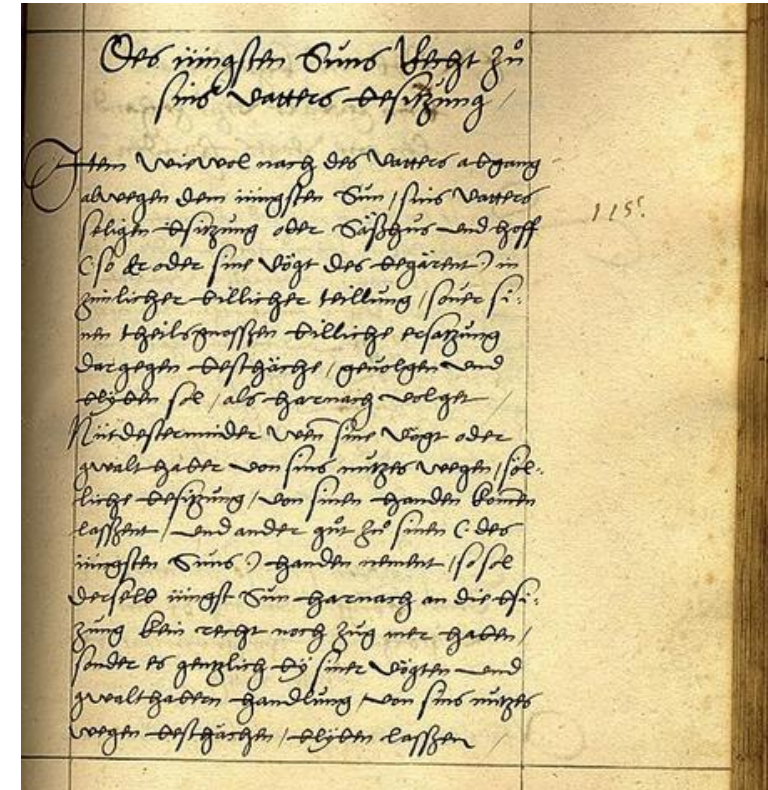 Des jüngsten Suns Recht zů
sins vatters besitzung /
Item Wiewol nach des Vatters abgang
alwegen dem jüngsten Sun / sins Vatters
seligen bsitzung oder Säßhus und Hoff
(: so Er oder sine Vögt des begärent :) in
zimlicher billicher teillung / sover si-
nen theilsgnossen billiche ersatzung
dargegen beschäche / gevolgen und
blyben sol / als harnach volget /
Nütdesterminder Wen̄ sine Vögt oder
gwalthaber von sins nutzes wegen / söl-
liche besitzung / von sinen handen kom̄en
lassent / und ander gůt zů sinen (: des
jüngsten Suns :) handen nement / so sol
derselb jüngst Sun harnach an die bsi-
zung kein recht noch zug mer haben /
sonder es gentzlich by siner Vögten und
gwalthabern handlung / von sins nutzes
wegen beschächen / blyben lassen